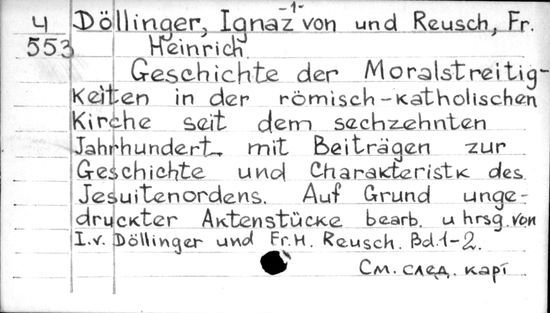 -1-
4 Döllinger, Ignaz von und Reusch, Fr.
553 Heinrich.
Geschichte der Moralstreitig-
keiten in der römisch-katholischen
Kirche seit dem sechzehnten
Jahrhundert mit Beiträgen zur
Geschichte und Charakteristk des
Jesuitenordens. Auf Grund unge-
druckter Aktenstücke bearb. u hrsg. von
I.v. Döllinger und Fr.H. Reusch. Bd.1-2.
См. след. карт